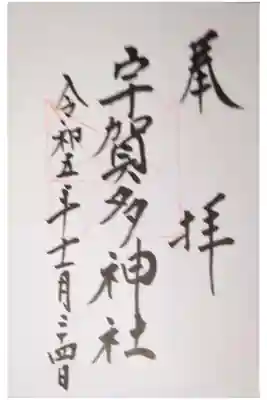 奉拝
宇賀多神社
令和五年十一月二四日